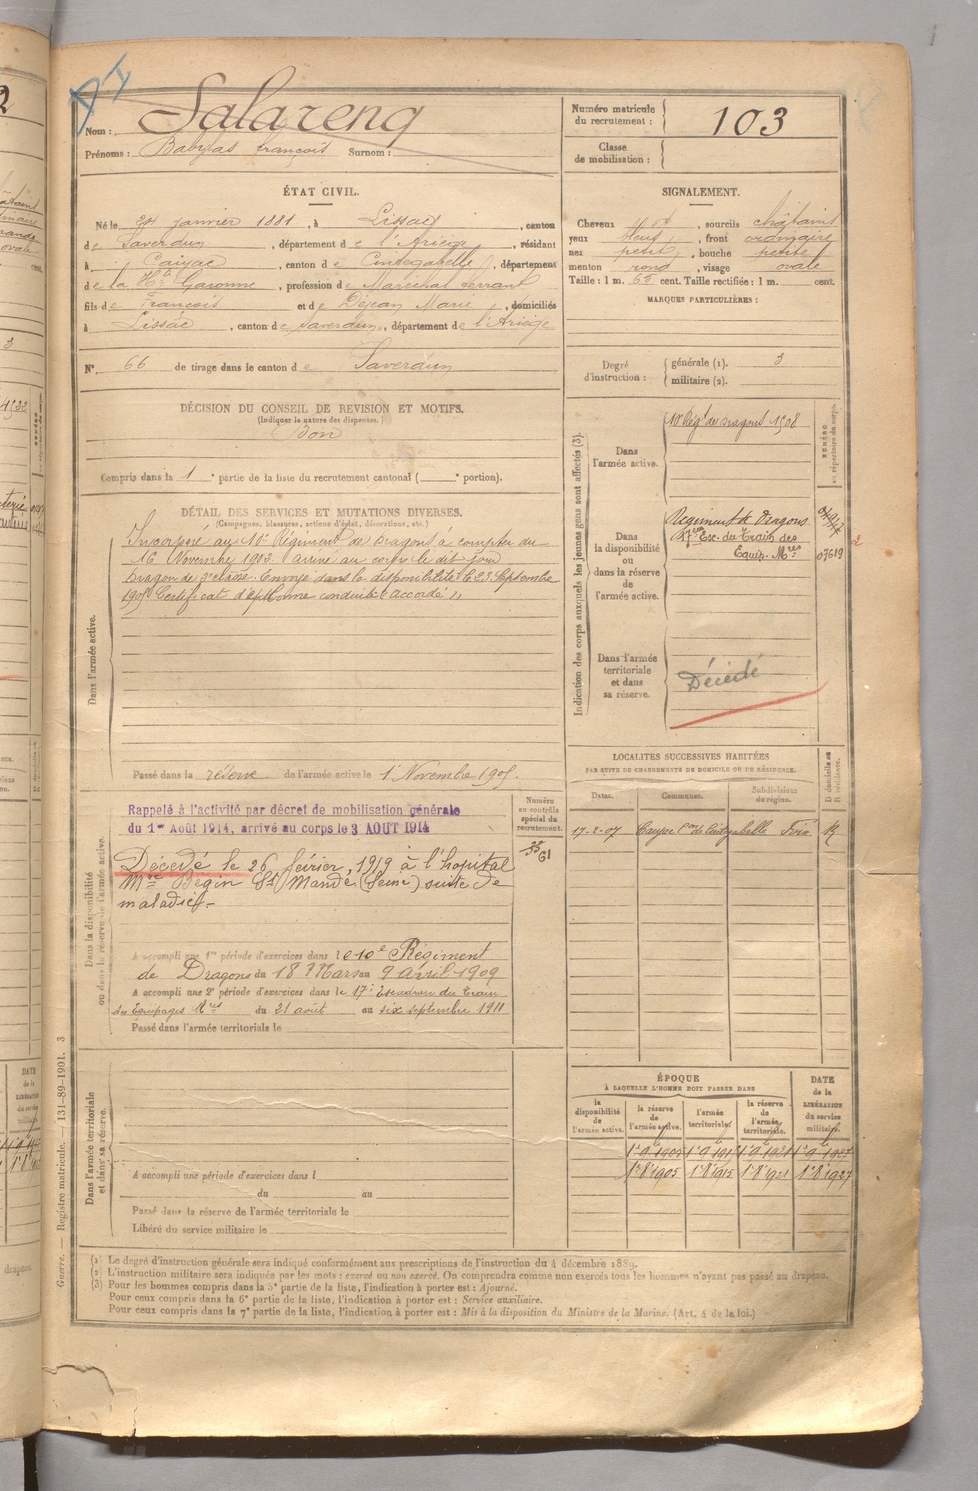 Nom : Salareng
Prénoms : Babylas françois Surnom :
Numéro matricule du recrutement : 103
Classe de mobilisation :
ÉTAT CIVIL.
Né le 24 janvier 1881, à Lissac, canton
de Saverdun, département de l'Ariège, résidant
à Caujac, canton de Cintegabelle, département
de la Hte Garonne, profession de Maréchal ferrant
fils de François et de Dejean Marie, domiciliés
à Lissac, canton de Saverdun, département de l'Ariège
N° 66 de tirage dans le canton de Saverdun
SIGNALEMENT.
Cheveux , sourcils châtains
yeux bleus, front ordinaire
nez petit, bouche petite
menton rond, visage ovale
Taille : 1 m. 65 cent. Taille rectifiée : 1 m. cent.
MARQUES PARTICULIÈRES :
Degré d'instruction : générale (1). 3
militaire (2).
DÉCISION DU CONSEIL DE REVISION ET MOTIFS.
(Indiquer la nature des dispenses.)
Bon
Compris dans la 1e partie de la liste du recrutement cantonal ( e portion).
DÉTAIL DES SERVICES ET MUTATIONS DIVERSES.
(Campagnes, blessures, actions d'éclat, décorations, etc.)
Dans l'armée active.
Incorporé au 10e Régiment de Dragons à compter du
16 Novembre 1902 arrivé au corps le dit jour
Dragon de 2e classe. Envoyé dans la disponibilité le 23 Septembre
1905 Certificat de bonne conduite "Accordé"
Passé dans la réserve de l'armée active le 1 Novembre 1905.
Indication des corps auxquels les jeunes gens sont affectés (3).
Dans l'armée active.
10e Régt de Dragons 1908
NUMÉRO au répertoire du corps.
Dans la disponibilité ou dans la réserve de l'armée active.
Régiment de Dragons
17e Esc. du Train des
Equip. Mres
07619
Dans l'armée territoriale et dans sa réserve.
Décédé
Dans la disponibilité ou dans la réserve de l'armée active.
Rappelé à l'activité par décret de mobilisation générale
du 1er Août 1914, arrivé au corps le 3 AOUT 1914
Décédé le 26 février 1919 à l'hopital
Mre Bégin St Mandé (Seine) suite de
maladies.-
Numéro au contrôle spécial du recrutement.
A accompli une 1re période d'exercices dans le 10e Régiment
de Dragons du 18 Mars au 9 avril 1909
A accompli une 2e période d'exercices dans le 17e Escadron du Train
des Equipages Mres du 21 août au six septembre 1911
Passé dans l'armée territoriale le
LOCALITÉS SUCCESSIVES HABITÉES
PAR SUITE DE CHANGEMENTS DE DOMICILE OU DE RÉSIDENCE.
Dates. Communes. Subdivisions de région. D domicile ou R résidence.
17-2-07 Caujac Con de Cintegabelle Foix R
Dans l'armée territoriale et dans sa réserve.
A accompli une période d'exercices dans l
du au
Passé dans la réserve de l'armée territoriale le
Libéré du service militaire le
ÉPOQUE
À LAQUELLE L'HOMME DOIT PASSER DANS
la disponibilité de l'armée active. la réserve de l'armée active. l'armée territoriale. la réserve de l'armée territoriale.
DATE de la LIBÉRATION du service militaire.
1er 8 1905 1er 8 1915 1er 8 1921 1er 8 1927
Guerre. — Registre matricule. — 131-89-1901. 3
(1) Le degré d'instruction générale sera indiqué conformément aux prescriptions de l'instruction du 4 décembre 1889.
(2) L'instruction militaire sera indiquée par les mots : exercé ou non exercé. On comprendra comme non exercés tous les hommes n'ayant pas passé au drapeau.
(3) Pour les hommes compris dans la 5e partie de la liste, l'indication à porter est : Ajourné.
Pour ceux compris dans la 6e partie de la liste, l'indication à porter est : Service auxiliaire.
Pour ceux compris dans la 7e partie de la liste, l'indication à porter est : Mis à la disposition du Ministre de la Marine. (Art. 4 de la loi.)